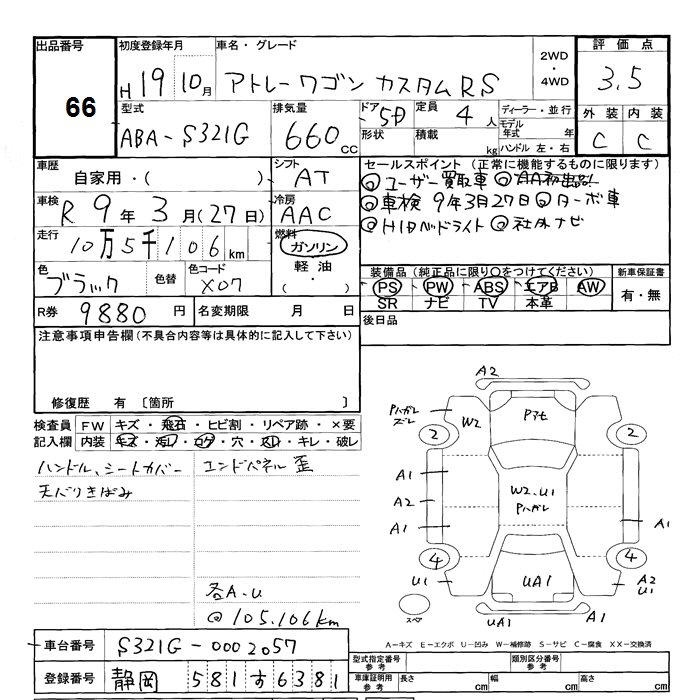 出品番号 66
初度登録年月 H 19 10月
車名・グレード アトレーワゴン カスタムRS
2WD・4WD
評価点 3.5
外装 C 内装 C
型式 ABA-S321G
排気量 660 cc
ドア 5D 形状
定員 4 人
積載 kg
ディーラー・並行
モデル年式 年
ハンドル 左・右
車歴 自家用・( )
シフト AT
車検 R 9年 3月(27日)
冷房 AAC
走行 10万5千106 km
燃料 ガソリン 軽油 (・)
色 ブラック 色替
色コード X07
R券 9880 円
名変期限 月 日
セールスポイント (正常に機能するものに限ります)
◎ユーザー買取車 ◎AA初出品
◎車検 9年3月27日 ◎ターボ車
◎HIDヘッドライト ◎社外ナビ
装備品 (純正品に限り○をつけてください)
PS PW ABS エアB AW
SR ナビ TV 本革
新車保証書 有・無
後日品
注意事項申告欄(不具合内容等は具体的に記入して下さい)
修復歴 有 〔箇所 〕
検査員記入欄
FW キズ・飛石・ヒビ割・リペア跡・×要
内装 キズ・汚レ・コゲ・穴・スレ・キレ・破レ
ハンドル、シートカバー
天バリきばみ
エンドパネル歪
各A.U
@105.106km
A2
Pハガレ
ズレ
W2
Pアセ
2
2
A1
A2
A1
W2.U1
Pハガレ
A1
4
4
U1
UA1
A2
U2
スペア
UA1
A1
A-キズ E-エクボ U-凹み W-補修跡 S-サビ C-腐食 XX-交換済
車台番号 S321G-0002057
登録番号 静岡 581 す 6381
型式指定番号 参考
類別区分番号 参考
車庫証明用 参考 長さ cm 幅 cm 高さ cm